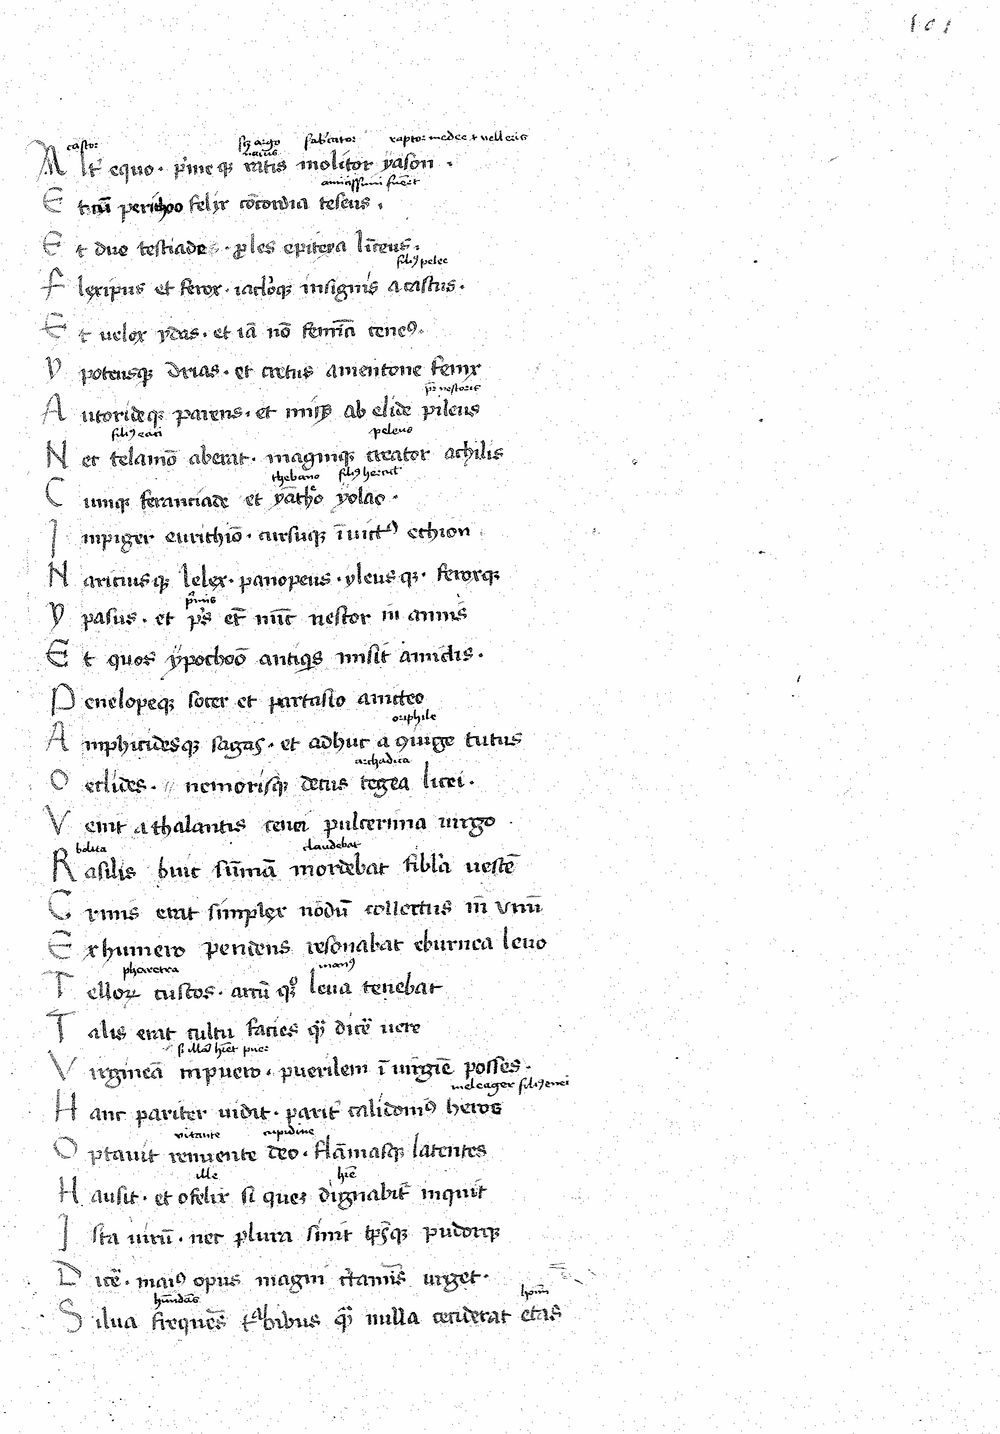 101
castor sz argo nauis fabricator raptor medee et velleris
Alt equo . pime q; ratis molitor yason .
amicissimi fuerut
Et cũ perithoo felix cõcordia teseus .
Et due testiade . ples epiteya linceus .
fili9 pelee
Flexipus et ferox . iaclõq; insignis acastus .
Et velox ydas . et iã nõ femĩa cene9 .
Ypoteusq; drias . et cretus amentone fenix
pr nestoris
Autorideq; parens . et missus ab elide pileus
fili9 eaci peleus
Nec telamõ aberat . magniq; creator achilis
thebano fili9 hercul
Cumq; feratiade et yãtheo yolao .
Inpiger eurithiõ . cursuq; ĩuict9 ethion
Nariciusq; lelex . panopeus . yleusq; . feroxq;
primis
Ypasus . et p's et nũc nestor in annis
Et quos ypochoõ antiqis misit amiclis .
Penelopeq; socer et partasio anceo
eriphile
Amphicidesq; sagax . et adhuc a 9iuge tutus
archadica
Oeclides . nemorisq; decus tegea licei .
Venit athalantis cenei pulcerima uirgo .
bolita claudebat
Rasilis huic sũmã mordebat fibla uestẽ
Crinis erat simplex nodũ collectus in vnũ
Ex humero pendens resonabat eburnea leuo
pharetra man9
Tellor custos . arcũ q; leua tenebat
Talis erat cultu facies q dicẽ uere
si illa hret puer
Virgineã in puero . puerilem ĩ uirgĩe posses .
meleager fili9 enei
Hanc pariter uidit . parit calidoni9 heros
vitante cupidine
Optauit renuente deo . flãmasq; latentes
ille hre
Hausit . et o felix si quez dignabit inquit
Ista uirũ . nec plura sinit tpsq; pudorq;
Dicẽ . mai9 opus magni ctaminis urget .
hũndãs hom
Silua frequẽs tabibus q nulla ceciderat etas